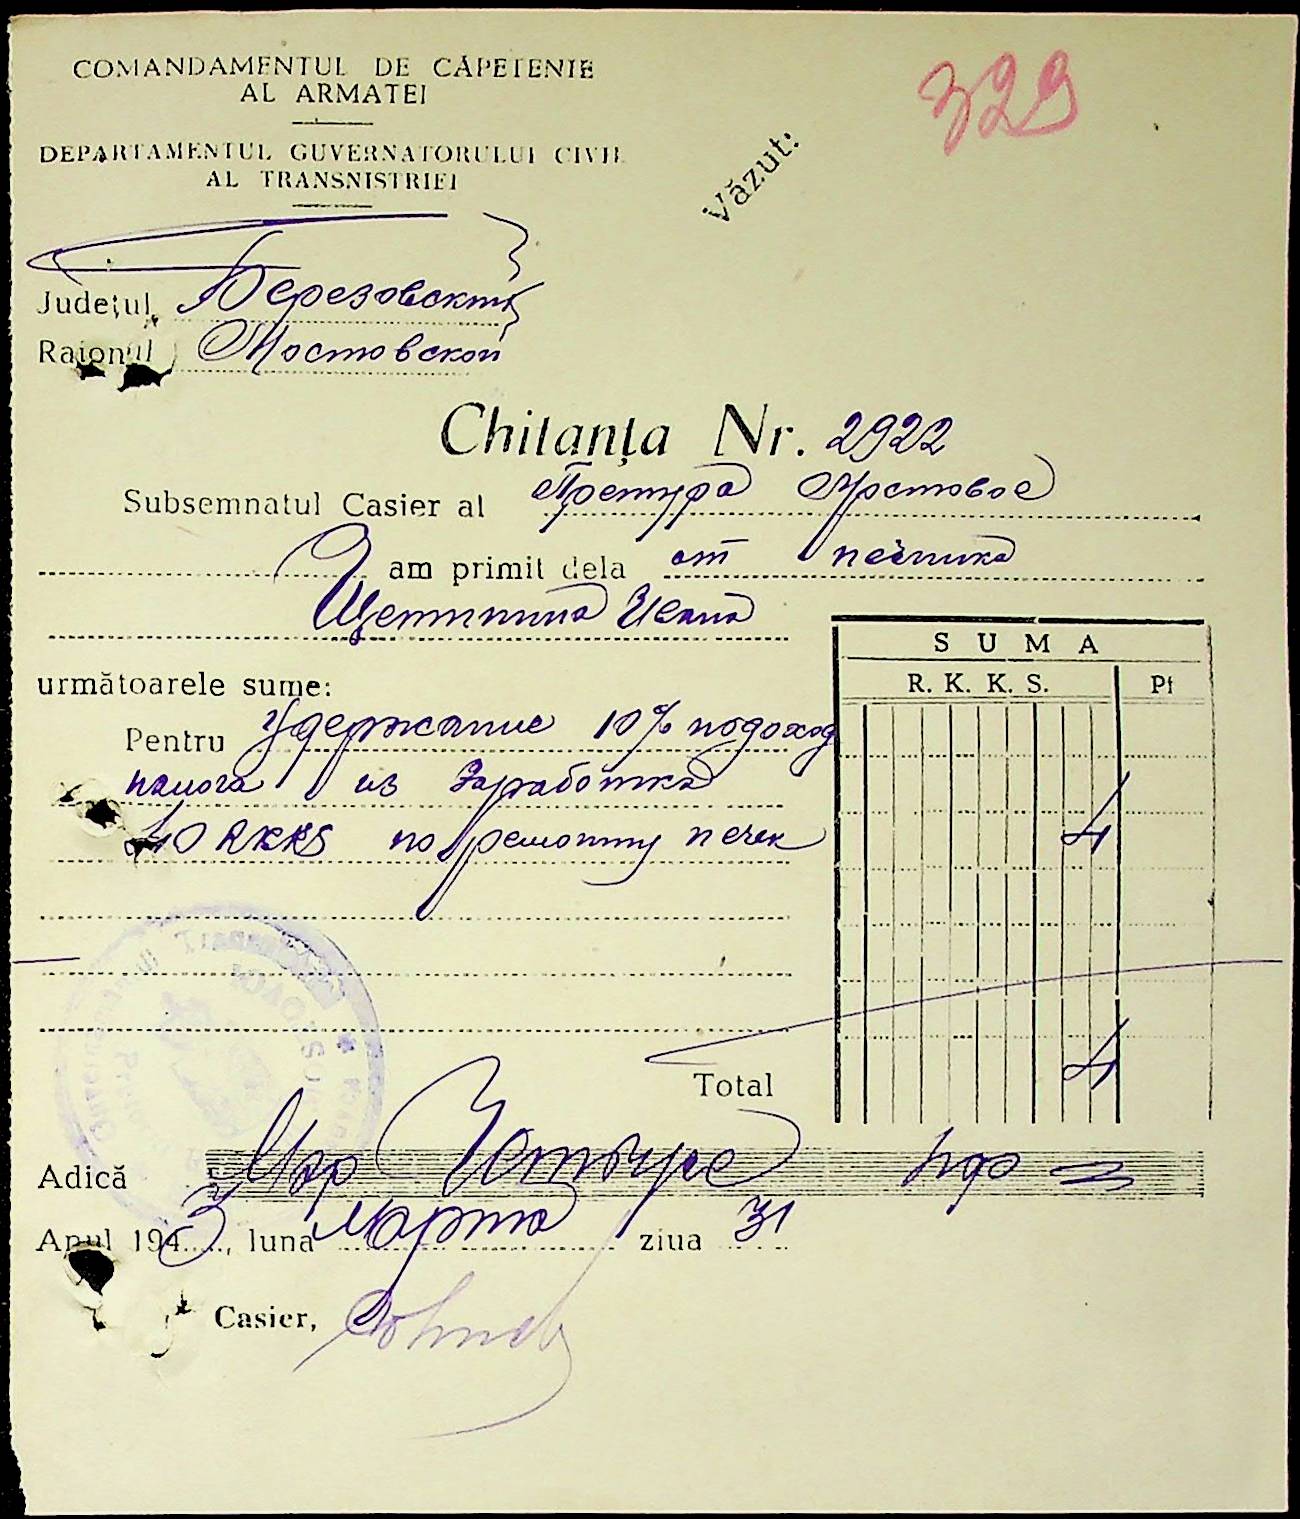 COMANDAMENTUL DE CĂPETENIE
AL ARMATEI
329
DEPARTAMENTUL GUVERNATORULUI CIVIL
AL TRANSNISTRIEI
Văzut:
Județul Березовский
Raionul Мостовской
Chitanța Nr. 2922
Subsemnatul Casier al Претура Мостовое
am primit dela от печника
Щетинина Ивана
următoarele sume:
SUMA
R. K. K. S. Pf
Pentru Удержание 10% подоход
налога из заработка
40 RKKS по ремонту печек
4
Total 4
Adică Мар Четыре пфо
Anul 1943, luna Марта ziua 31
Casier,